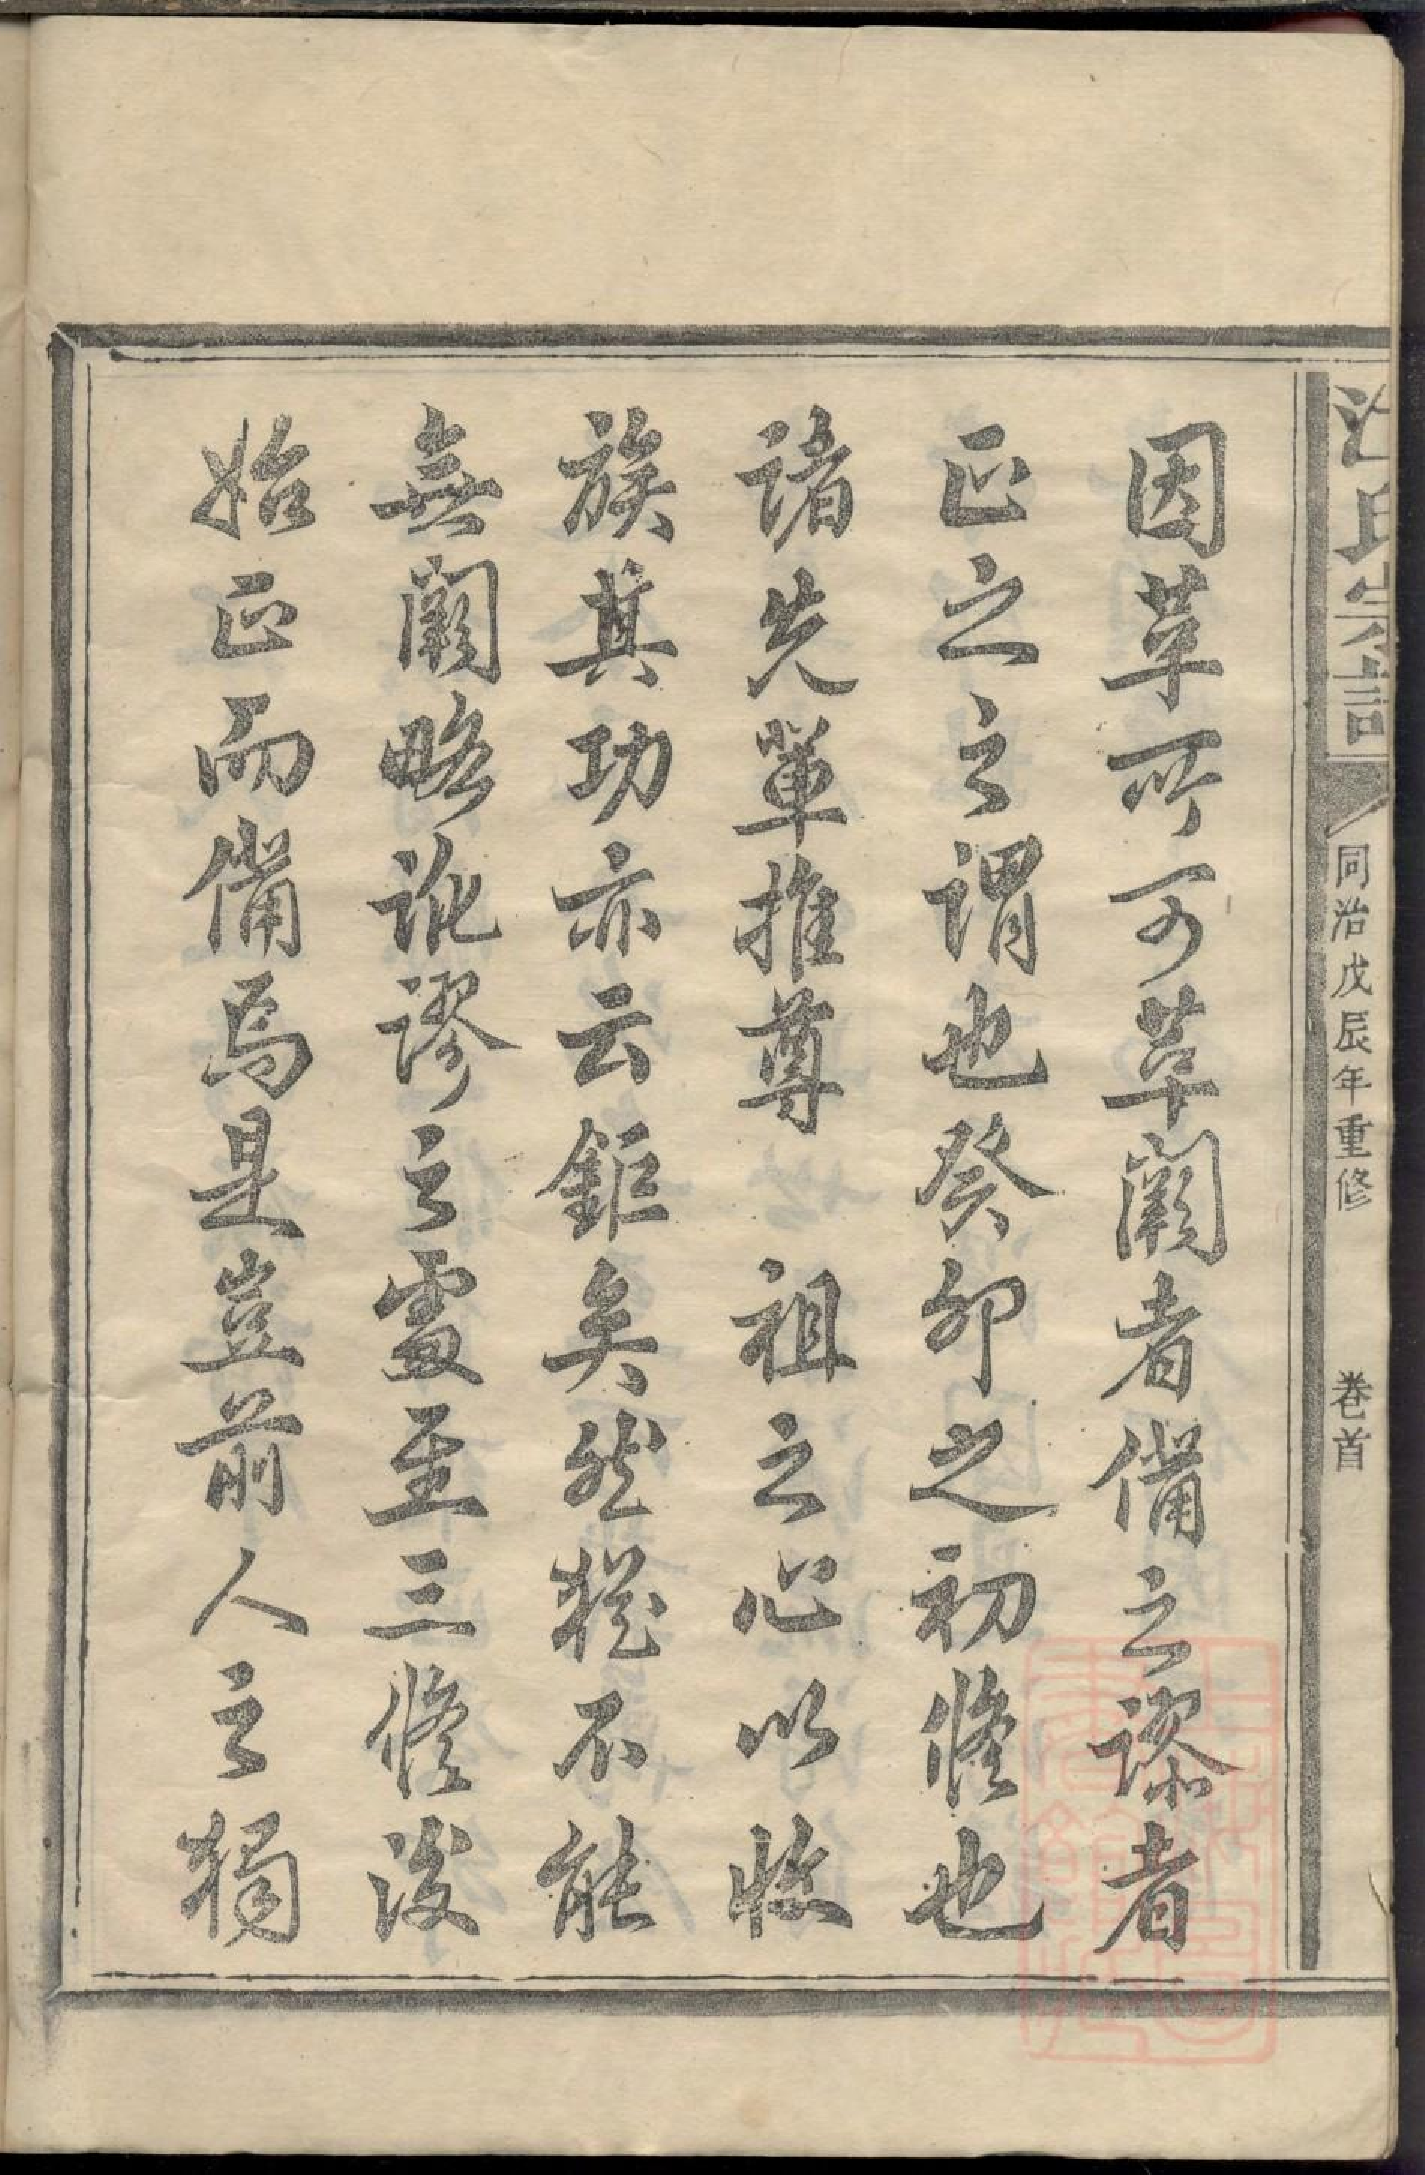 氏宗譜
同治戊辰年重修　卷首
因革所可革闕者備之謬者
正之之謂也癸卯之初修也
諸先輩推尊　祖之心以收
族其功亦云鉅矣然猶不能
無闕略訛謬之處至三修後
始正而備焉是豈前人之獨